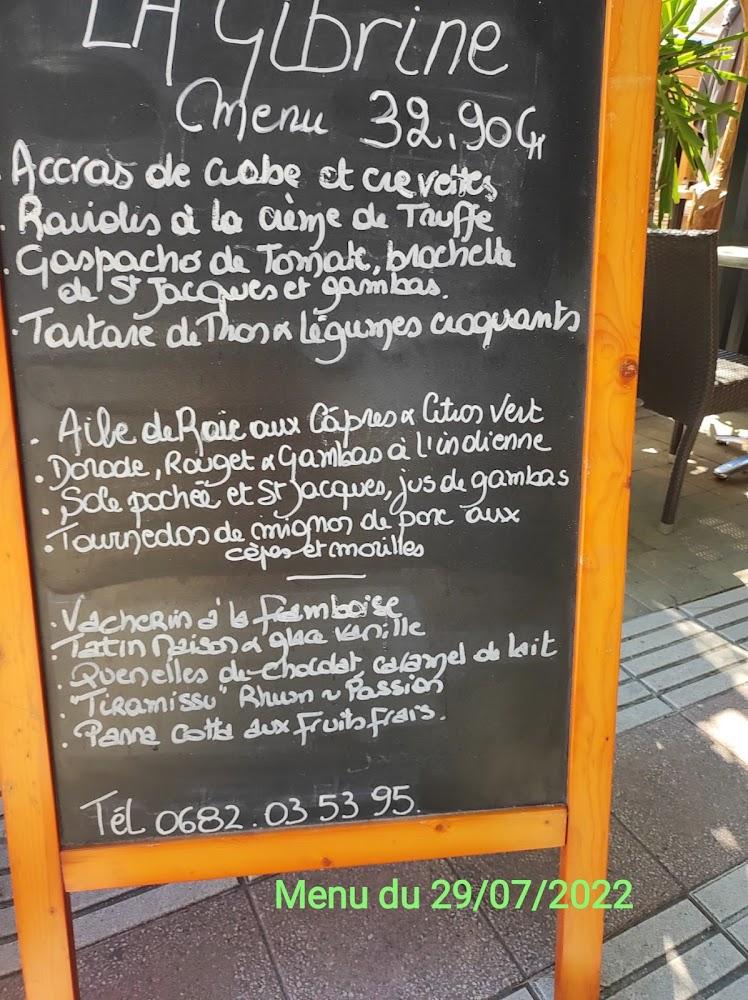 LA Gibrine
Menu 32.90€
Accras de crabe et crevettes
. Ravioles à la crème de Truffe
. Gaspacho de Tomate, brochette
de St Jacques et gambas.
. Tartare de Thon & légumes croquants
. Aile de Raie aux Câpres & Citron Vert
. Dorade, Rouget & Gambas à l'indienne
. Sole pochée et St Jacques, jus de gambas
. Tournedos de mignon de porc aux
cèpes et morilles
. Vacherin à la framboise
. Tatin Maison & glace vanille
. Quenelles de chocolat, caramel au lait
. "Tiramissu" Rhum ~ Passion
. Panna Cotta aux fruits frais.
Tél 0682.03 53 95.
Menu du 29/07/2022